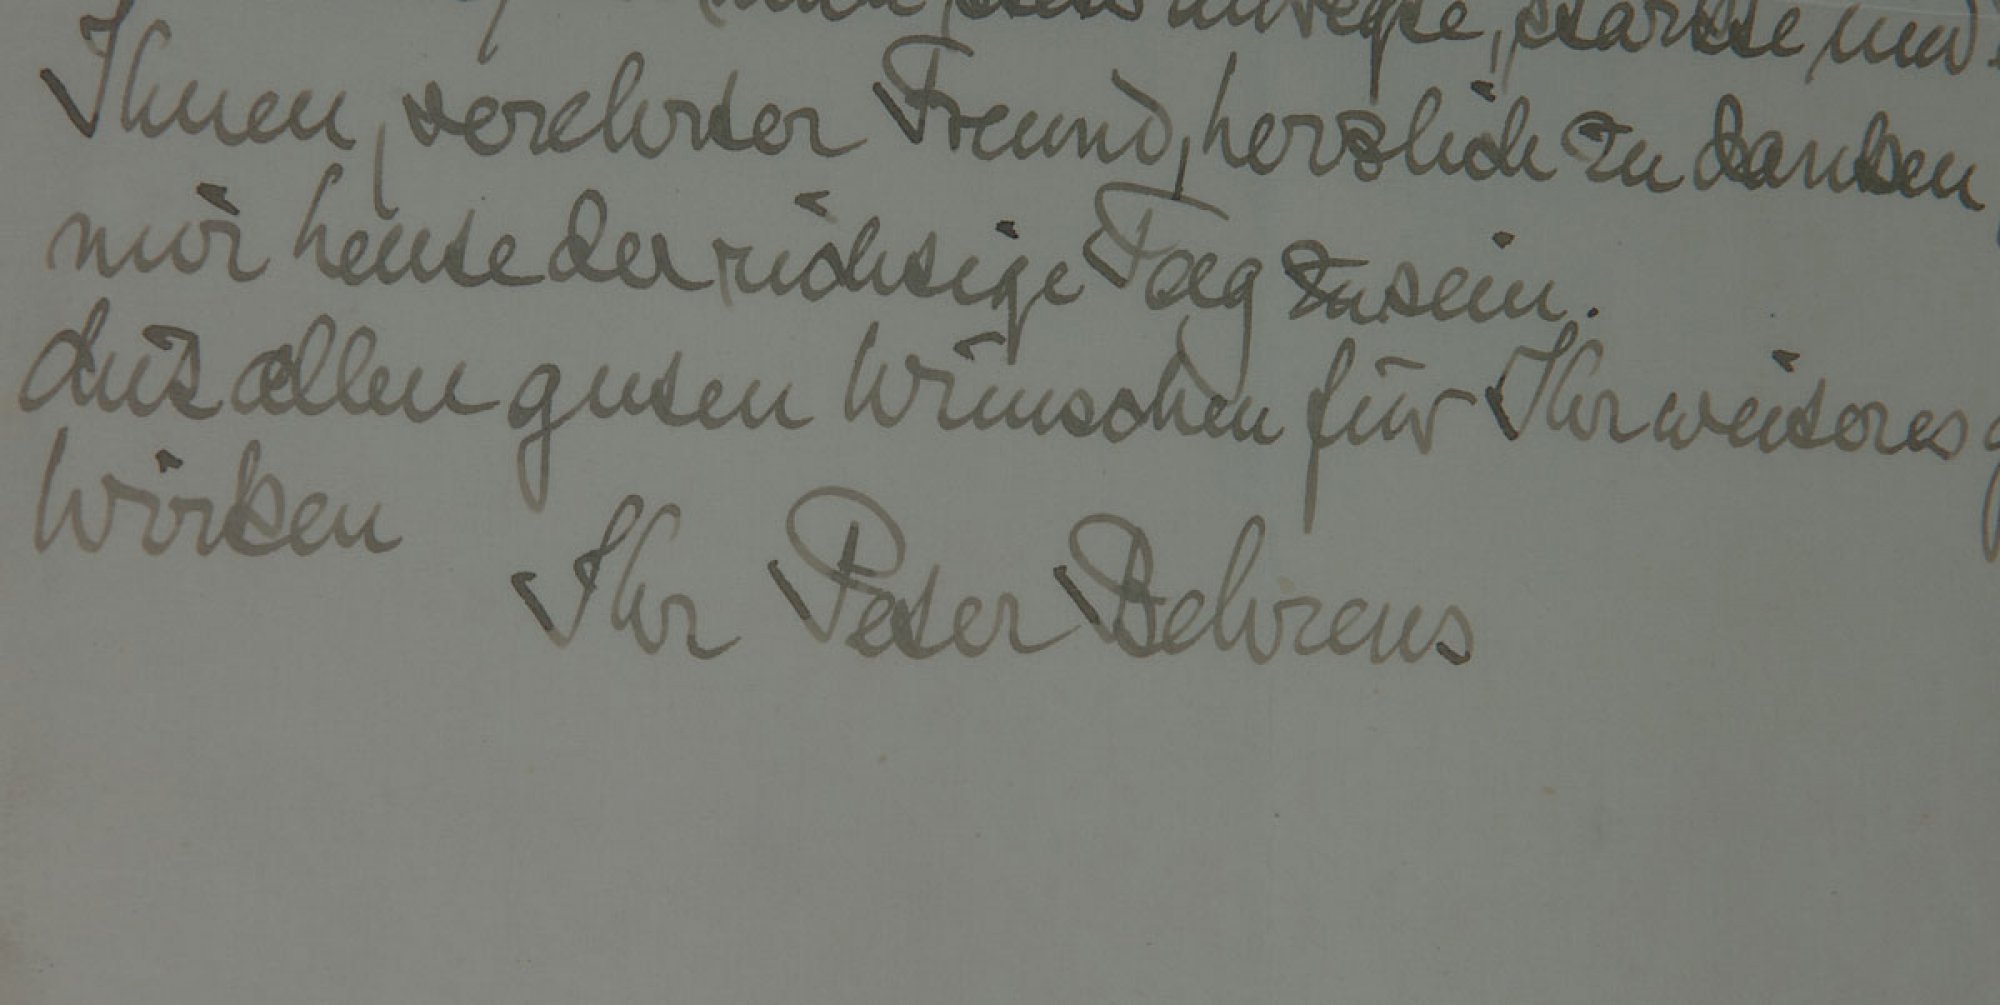 mich stets anregte, stärkte und
Ihnen, verehrter Freund, herzlich zu danken,
mir heute der richtige Tag zu sein.
Mit allen guten Wünschen für Ihr weiteres
Wirken
Ihr Peter Behrens